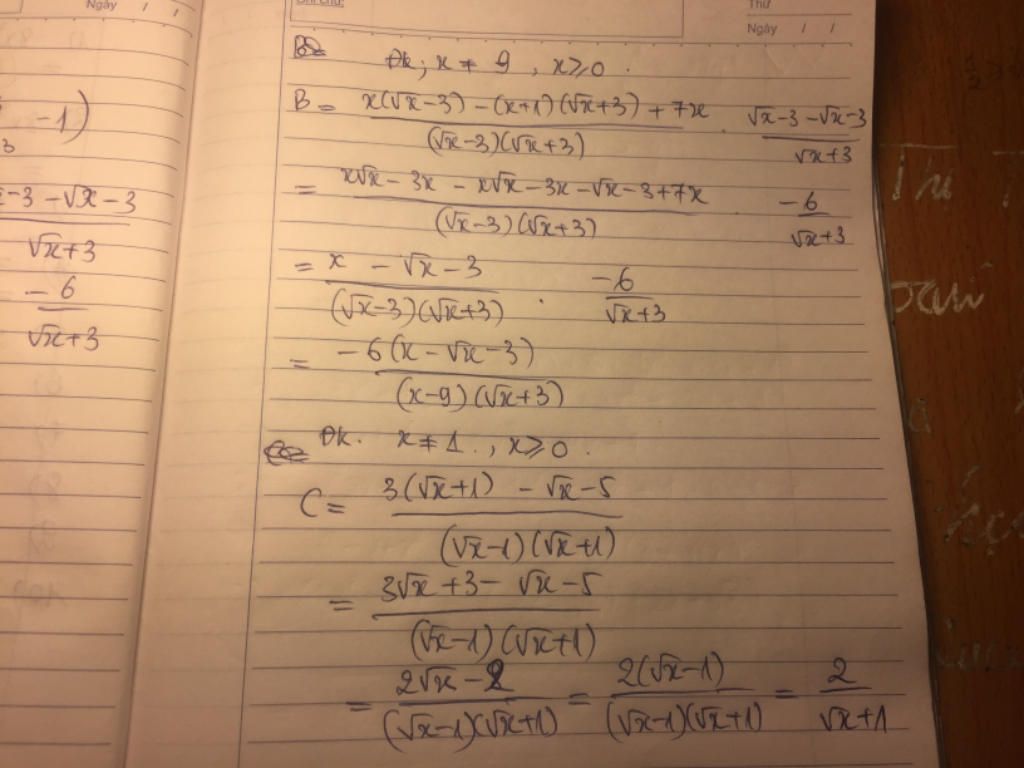 Ngày / /
Thứ
Ngày / /
-1)
-3 -√x -3
√x+3
-6
√x+3
Đk; x ≠ 9, x ≥ 0.
B = x(√x-3) - (x+1)(√x+3) + 7x / (√x-3)(√x+3) . √x-3 -√x-3 / √x+3
= x√x - 3x - x√x - 3x - √x - 3 + 7x / (√x-3)(√x+3) . -6 / √x+3
= x - √x - 3 / (√x-3)(√x+3) . -6 / √x+3
= -6(x - √x - 3) / (x-9)(√x+3)
Đk. x ≠ 1., x ≥ 0.
C = 3(√x+1) - √x - 5 / (√x-1)(√x+1)
= 3√x + 3 - √x - 5 / (√x-1)(√x+1)
= 2√x - 2 / (√x-1)(√x+1) = 2(√x-1) / (√x-1)(√x+1) = 2 / √x+1